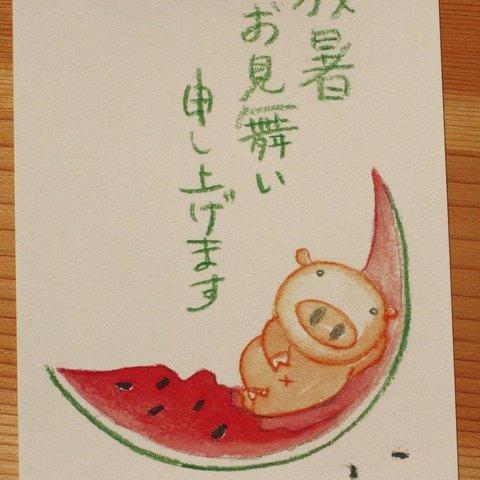 暑
お見舞い
申し上げます